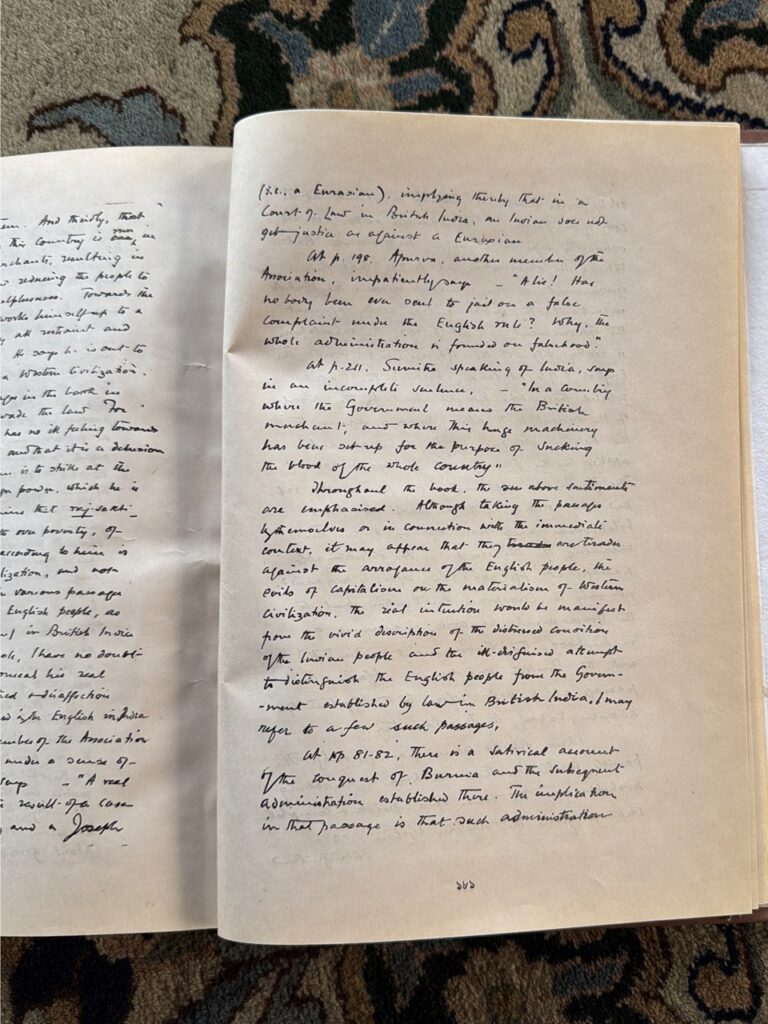 tem. And thirdly, that
this country is now in
merchants, resulting in
reducing the people to
helplessness. Towards the
works himself up to a
all restraint and
He says he is out to
a Western Civilization.
in the book in
the law. For
has no ill feeling towards
and that it is a delusion
is to strike at the
power, which he is
that raj-sakti
our poverty, of
according to him is
civilization, and not
various passages
English people, as
in British India
I have no doubt
conceal his real
disaffection
by the English in India
member of the Association
under a sense of
says - "A real
result of a case
and a Joseph
(i.e., a Eurasian), implying thereby that in a
Court of Law in British India, an Indian does not
get justice as against a Eurasian
At p. 198. Apurva, another member of the
Association, impatiently says - "A lie! Has
nobody been ever sent to jail on a false
complaint under the English rule? Why, the
whole administration is founded on falsehood."
At p. 211. Sumitra speaking of India, says
in an incomplete sentence, - "In a country
where the Government means the British
merchant, and where this huge machinery
has been set up for the purpose of sucking
the blood of the whole country"
Throughout the book, the above sentiments
are emphasised. Although taking the passages
by themselves or in connection with the immediate
context, it may appear that they are tirades
against the arrogance of the English people, the
evils of capitalism or the materialism of Western
Civilization, the real intention would be manifest
from the vivid description of the distressed condition
of the Indian people and the ill-disguised attempt
to distinguish the English people from the Govern-
-ment established by law in British India. I may
refer to a few such passages,
At pp 81-82, there is a satirical account
of the conquest of Burma and the subsequent
administration established there. The implication
in that passage is that such administration
১৮১